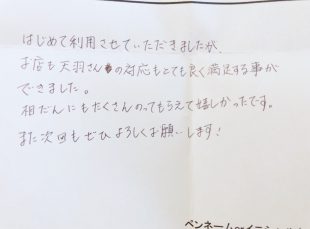 はじめて利用させていただきましたが、
お店も天羽さんの対応もとても良く満足する事が
できました。
相だんにもたくさんのってもらえて嬉しかったです。
また次回もぜひよろしくお願いします!
ペンネーム or イニシャル